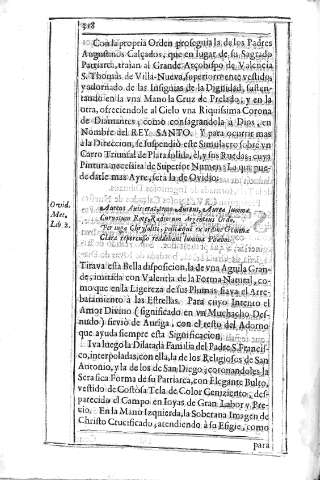 318
Con la propria Orden proseguia la de los Padres
Augustinos Calçados, que en lugar de su Sagrado
Patriarca, traian al Grande Arçobispo de Valencia
S. Thomas de Villa-Nueva, superiormente vestido,
y adornado de las Insignias de la Dignidad, susten-
tando en la vna Mano la Cruz de Prelado, y en la
otra, ofreciendole al Cielo vna Riquissima Corona
de Diamantes, como consagrandola à Dios, en
Nombre del REY SANTO. Y para ocurrir mas
à la Direccion, se suspendiò este Simulacro sobre vn
Carro Triunfal de Plata solida, èl, y sus Ruedas; cuya
Pintura necessita de Superior Numen: Lo que pue-
de darle mas Ayre, serà la de Ovidio:
Ovid.
Met.
Lib. 2.
Aureus Axis erat, temo Aureus, Aurea summæ
Curvatura Rotæ, Radiorum Argenteus Ordo,
Per iuga Chrysoliti, positæque ex ordine Gemmæ
Clara repercusso reddebant lumina Phœbo.
Tirava esta Bella disposicion, la de vna Aguila Gran-
de, imitada con Valentia de la Forma Natural, co-
mo que en la Ligereza de sus Plumas fiava el Arre-
batamiento à las Estrellas. Para cuyo Intento el
Amor Divino (significado en vn Muchacho Des-
nudo) sirviò de Auriga, con el resto del Adorno
que ayuda siempre esta Significacion.
Iva luego la Dilatada Familia del Padre S. Francis-
co, interpoladas, con ella, la de los Religiosos de San
Antonio, y la de los de San Diego; coronandoles la
Serafica Forma de su Patriarca, con Elegante Bulto,
vestido de Costosa Tela de Color Ceniziento, des-
parecido el Campo en Joyas de Gran Labor, y Pre-
cio. En la Mano Izquierda, la Soberana Imagen de
Christo Crucificado, atendiendo à su Esigie, como
para